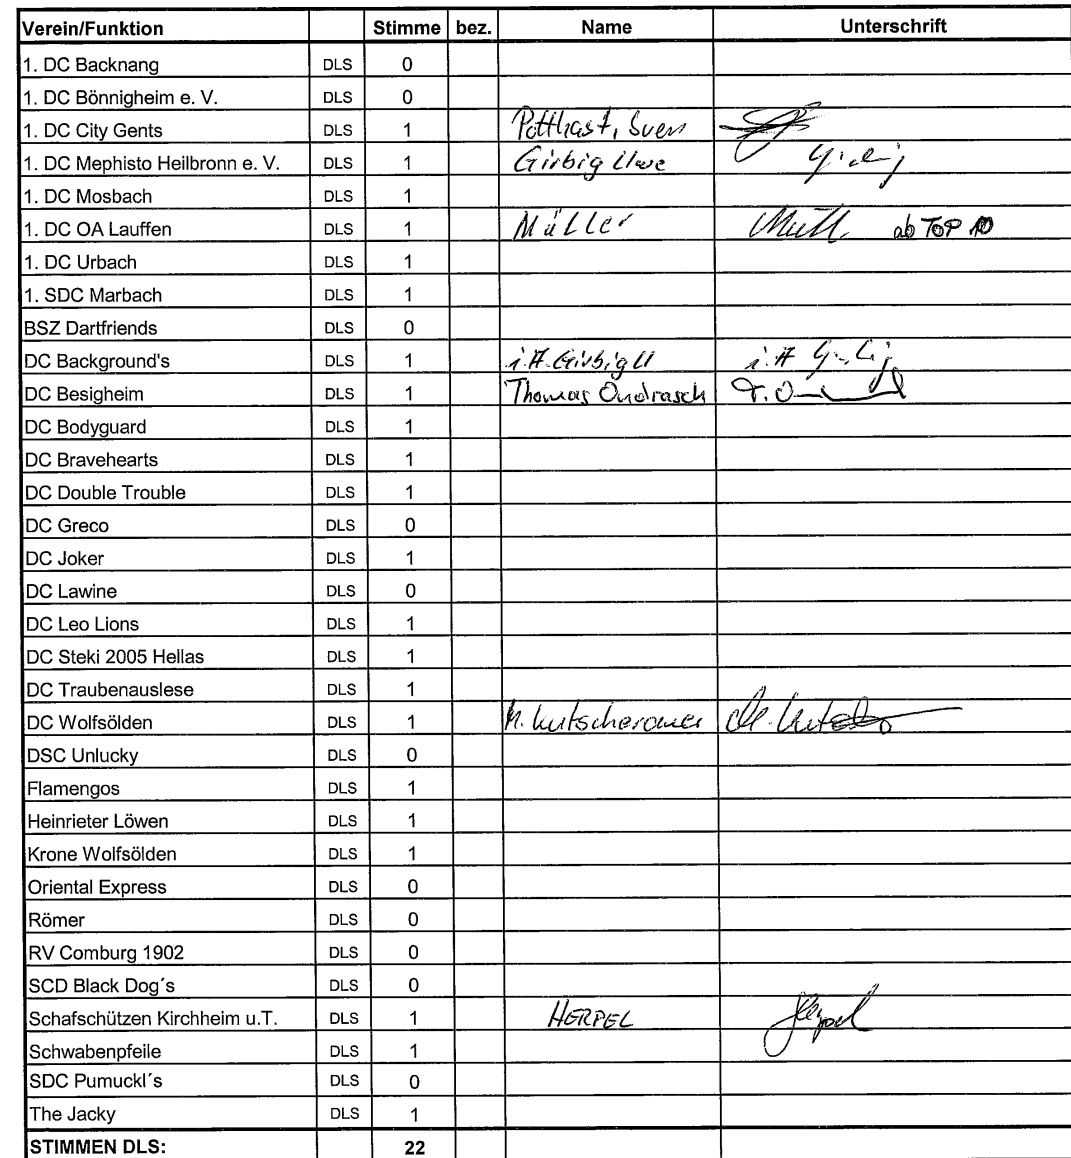 Verein/Funktion Stimme bez. Name Unterschrift
1. DC Backnang DLS 0
1. DC Bönnigheim e. V. DLS 0
1. DC City Gents DLS 1 Potthast, Sven
1. DC Mephisto Heilbronn e. V. DLS 1 Girbig Uwe
1. DC Mosbach DLS 1
1. DC OA Lauffen DLS 1 Müller ab TOP 10
1. DC Urbach DLS 1
1. SDC Marbach DLS 1
BSZ Dartfriends DLS 0
DC Background's DLS 1 i.A. Girbig U i.A
DC Besigheim DLS 1 Thomas Ondrasch T. O
DC Bodyguard DLS 1
DC Bravehearts DLS 1
DC Double Trouble DLS 1
DC Greco DLS 0
DC Joker DLS 1
DC Lawine DLS 0
DC Leo Lions DLS 1
DC Steki 2005 Hellas DLS 1
DC Traubenauslese DLS 1
DC Wolfsölden DLS 1 M.
DSC Unlucky DLS 0
Flamengos DLS 1
Heinrieter Löwen DLS 1
Krone Wolfsölden DLS 1
Oriental Express DLS 0
Römer DLS 0
RV Comburg 1902 DLS 0
SCD Black Dog´s DLS 0
Schafschützen Kirchheim u.T. DLS 1 HERPEL Herpel
Schwabenpfeile DLS 1
SDC Pumuckl´s DLS 0
The Jacky DLS 1
STIMMEN DLS: 22